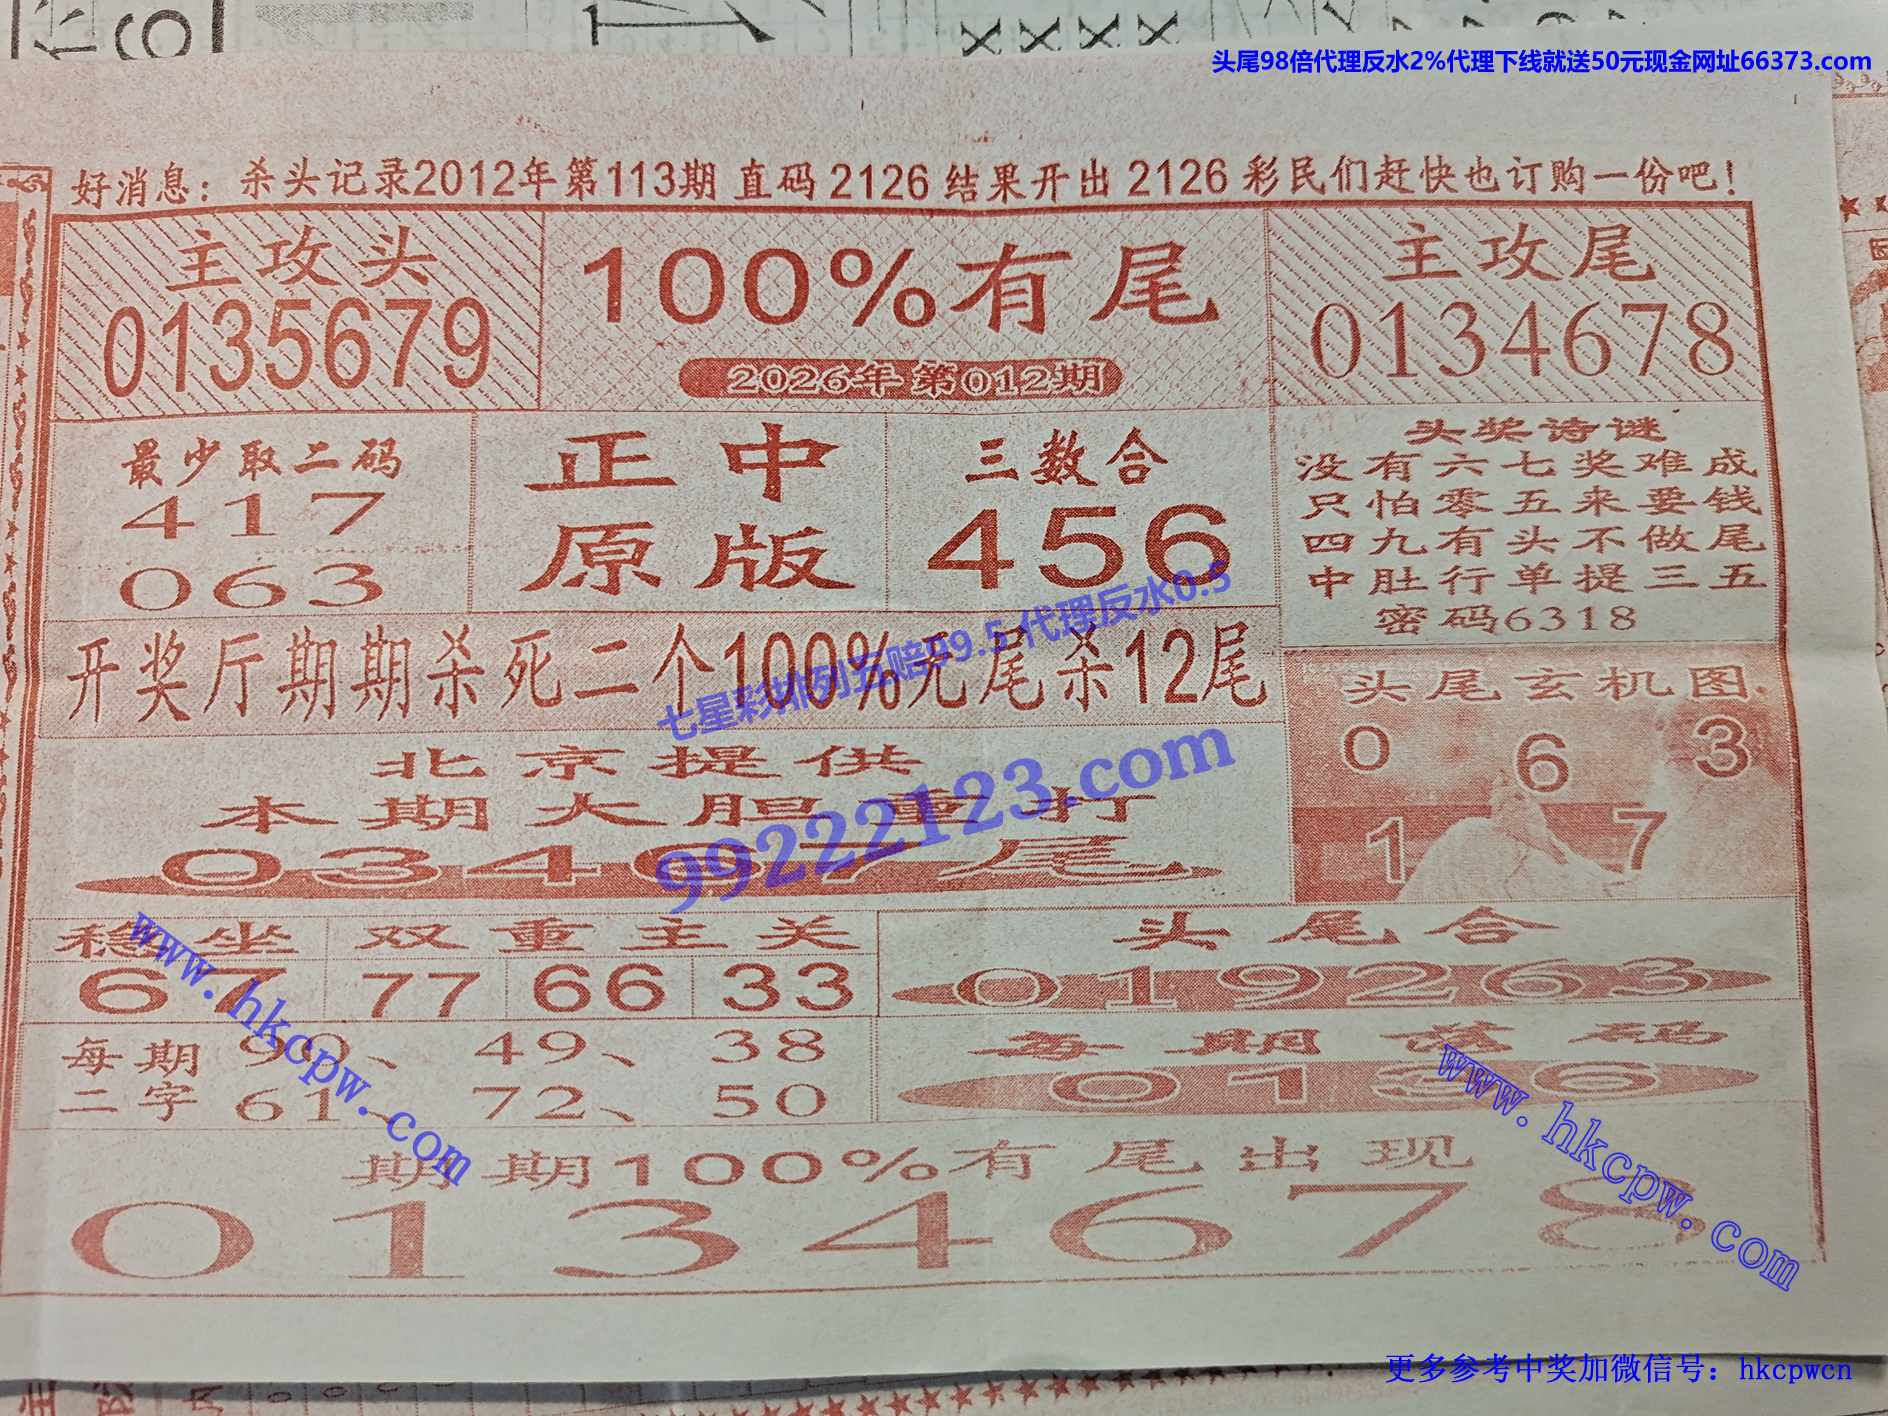 头尾98倍代理反水2%代理下线就送50元现金网址66373.com
好消息：杀头记录2012年第113期 直码 2126 结果开出 2126 彩民们赶快也订购一份吧！
主攻头
0135679
100%有尾
2026年 第012期
主攻尾
0134678
最少取二码
417
063
正中
原版
三数合
456
头奖诗谜
没有六七奖难成
只怕零五来要钱
四九有头不做尾
中肚行单提三五
密码6318
开奖厅期期杀死二个100%无尾杀12尾
七星彩排列五赔99.5 代理反水0.5
99222123.com
头尾玄机图
0 6 3
1 7
北京提供
本期大胆重打
03467尾
稳坐
67
双重主关
77 66 33
头尾合
019263
每期二字
90、 49、 38
61、 72、 50
每期落码
0136
期期100%有尾出现
0134678
www.hkcpw.com
www.hkcpw.com
更多参考中奖加微信号：hkcpwcn